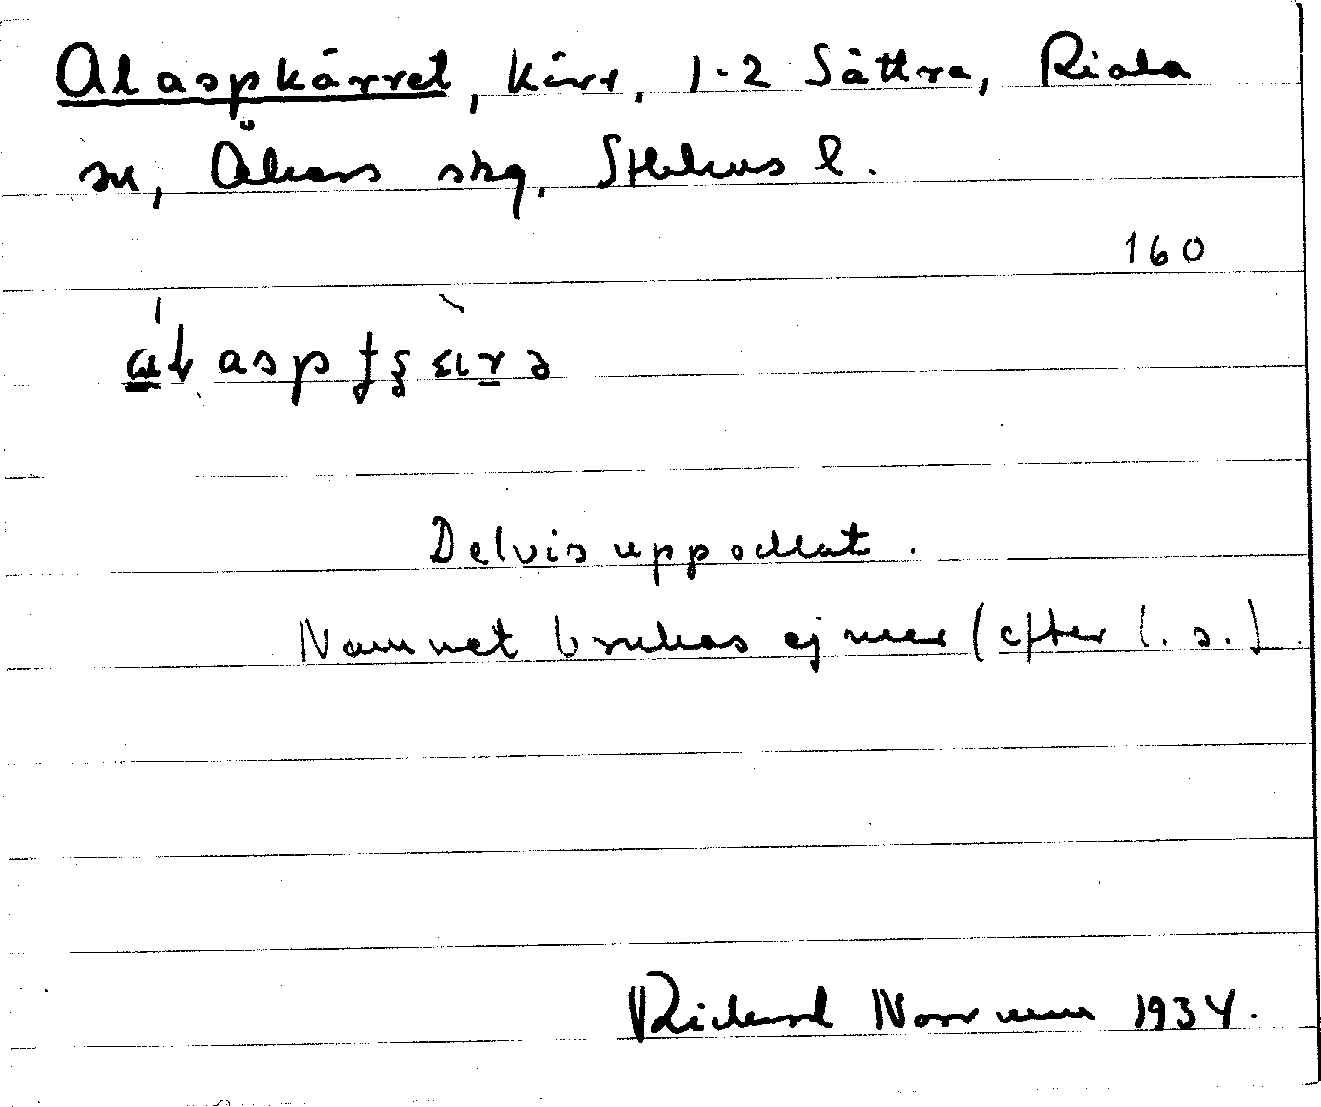 Alaspkärret, kärr, 1-2 Sättra, Riala
sn, Åkers skg, Sthlms l.
160
Delvis uppodlat.
Namnet brukas ej mer (efter l. s.).
Rickard Norrman 1934.